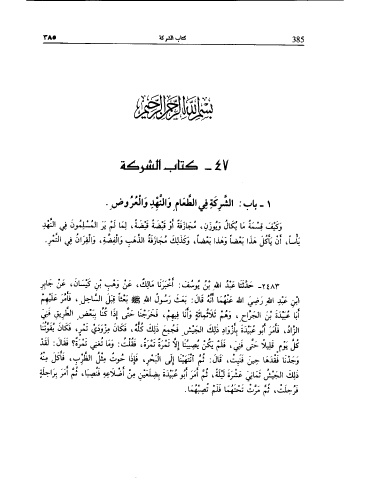 ٣٨٥ كتاب الشركة 385
بِسْمِ اللَّهِ الرَّحْمَنِ الرَّحِيمِ
٤٧ - كتاب الشركة
١ - باب: الشَّرِكَةِ فِي الطَّعَامِ وَالنَّهْدِ وَالْعُرُوضِ.
وَكَيْفَ قِسْمَةُ مَا يُكَالُ وَيُوزَنُ، مُجَازَفَةً أَوْ قَبْضَةً قَبْضَةً، لِمَا لَمْ يَرَ الْمُسْلِمُونَ فِي النَّهْدِ
بَأْساً، أَنْ يَأْكُلَ هَذَا بَعْضاً وَهَذَا بَعْضاً، وَكَذَلِكَ مُجَازَفَةُ الذَّهَبِ وَالْفِضَّةِ، وَالْقِرَانُ فِي التَّمْرِ.
٢٤٨٣- حَدَّثَنَا عَبْدُ اللهِ بْنُ يُوسُفَ: أَخْبَرَنَا مَالِكٌ، عَنْ وَهْبِ بْنِ كَيْسَانَ، عَنْ جَابِرِ
ابْنِ عَبْدِ اللهِ رَضِيَ اللهُ عَنْهُمَا أَنَّهُ قَالَ: بَعَثَ رَسُولُ اللهِ ﷺ بَعْثاً قِبَلَ السَّاحِلِ، فَأَمَّرَ عَلَيْهِمْ
أَبَا عُبَيْدَةَ بْنَ الجَرَّاحِ، وَهُمْ ثَلَاثُمِائَةٍ وَأَنَا فِيهِمْ، فَخَرَجْنَا حَتَّى إِذَا كُنَّا بِبَعْضِ الطَّرِيقِ فَنِيَ
الزَّادُ، فَأَمَرَ أَبُو عُبَيْدَةَ بِأَزْوَادِ ذَلِكَ الجَيْشِ فَجُمِعَ ذَلِكَ كُلُّهُ، فَكَانَ مِزْوَدَيْ تَمْرٍ، فَكَانَ يُقَوِّتُنَا
كُلَّ يَوْمٍ قَلِيلًا قَلِيلًا حَتَّى فَنِيَ، فَلَمْ يَكُنْ يُصِيبُنَا إِلَّا تَمْرَةٌ تَمْرَةٌ، فَقُلْتُ: وَمَا تُغْنِي تَمْرَةٌ؟ فَقَالَ: لَقَدْ
وَجَدْنَا فَقْدَهَا حِينَ فَنِيَتْ، قَالَ: ثُمَّ انْتَهَيْنَا إِلَى الْبَحْرِ، فَإِذَا حُوتٌ مِثْلُ الظَّرِبِ، فَأَكَلَ مِنْهُ
ذَلِكَ الجَيْشُ ثَمَانِيَ عَشْرَةَ لَيْلَةً، ثُمَّ أَمَرَ أَبُو عُبَيْدَةَ بِضِلَعَيْنِ مِنْ أَضْلَاعِهِ فَنُصِبَا، ثُمَّ أَمَرَ بِرَاحِلَةٍ
فَرُحِلَتْ، ثُمَّ مَرَّتْ تَحْتَهُمَا فَلَمْ تُصِبْهُمَا.